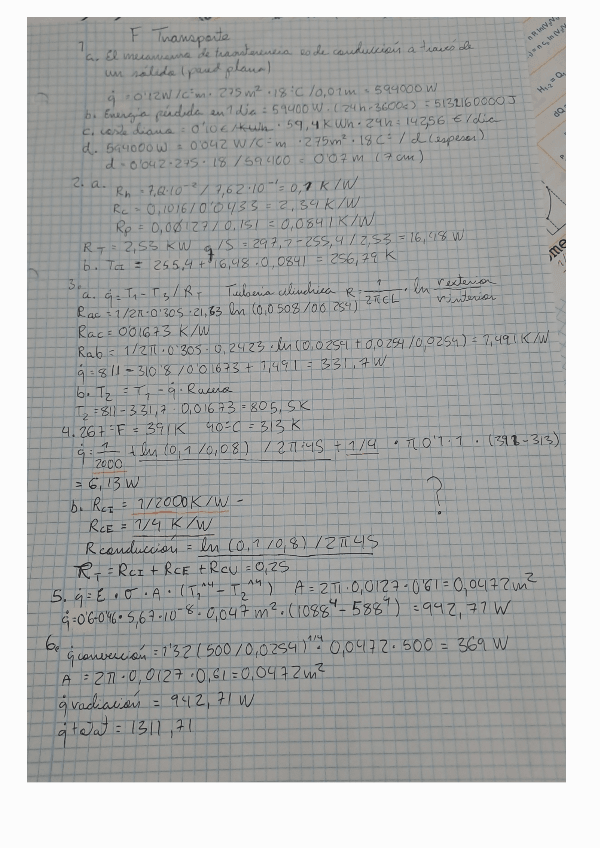 F Transporte
1
a. El mecanismo de transferencia es de conducción a través de
un sólido (pared plana)
q̇ = 0'12 W/Cºm · 275m² · 18ºC / 0,01m = 594000 W
b. Energía perdida en 1 día = 59400 W · (24h · 3600s) = 5132160000 J
c. coste diario = 0'10 €/kWh · 59,4 KWh · 24h = 142,56 €/día
d. 594000W = 0'042 W/Cº-m · 275m² · 18Cº / d (espesor)
d = 0'042 · 275 · 18 / 59400 = 0'07 m (7 cm)
2. a. Rh = 7,62·10⁻² / 7,62·10⁻¹ = 0,1 K/W
Rc = 0,1016 / 0'0433 = 2,34 K/W
Rp = 0,00127 / 0,151 = 0,0841 K/W
RT = 2,53 KW q/S = 297,2 - 255,4 / 2,53 = 16,48 W
b. TCI = 255,4 + 16,48 · 0,0841 = 256,79 K
3.
a. q̇ = T1 - T3 / RT Tubería cilíndrica R = 1/2πCL · ln rexterior/rinterior
Rac = 1/2π · 0'305 · 21,63 ln (0,0508/00254)
Rac = 001673 K/W
Rab = 1/2π · 0'305 · 0,2423 · ln(0,0254 + 0,0254/0,0254) = 1,491 K/W
q̇ = 811 - 310'8 / 0'01673 + 1,491 = 331,7 W
b. T2 = T1 - q̇ ·
T2 = 811 - 331,7 · 0,01673 = 805,5 K
4. 267ºF = 391K 40ºC = 313 K
q̇ = 1/2000 + ln (0,1/0,08) / 2π·45 + 1/4 · π0'1·1 · (391-313)
= 6,13 W
b. RCI = 1/2000 K/W -
?
RCE = 1/4 K/W
Rconducción = ln (0,1/0,8) / 2π45
RT = RCI + RCE + RCU = 0,25
5. q̇ = ε · σ · A · (T1^4 - T2^4) A = 2π · 0,0127 · 0'61 = 0,0472 m²
q̇ = 0'6·0'46 · 5,67·10⁻⁸ · 0,047 m² · (1088⁴ - 588⁴) = 942,71 W
6. q̇ convección = 1'32 (500/0,0254)^1/4 · 0,0472 · 500 = 369 W
A = 2π · 0,0127 · 0,61 = 0,0472 m²
q̇ radiación = 942,71 W
q̇ total = 1311,71